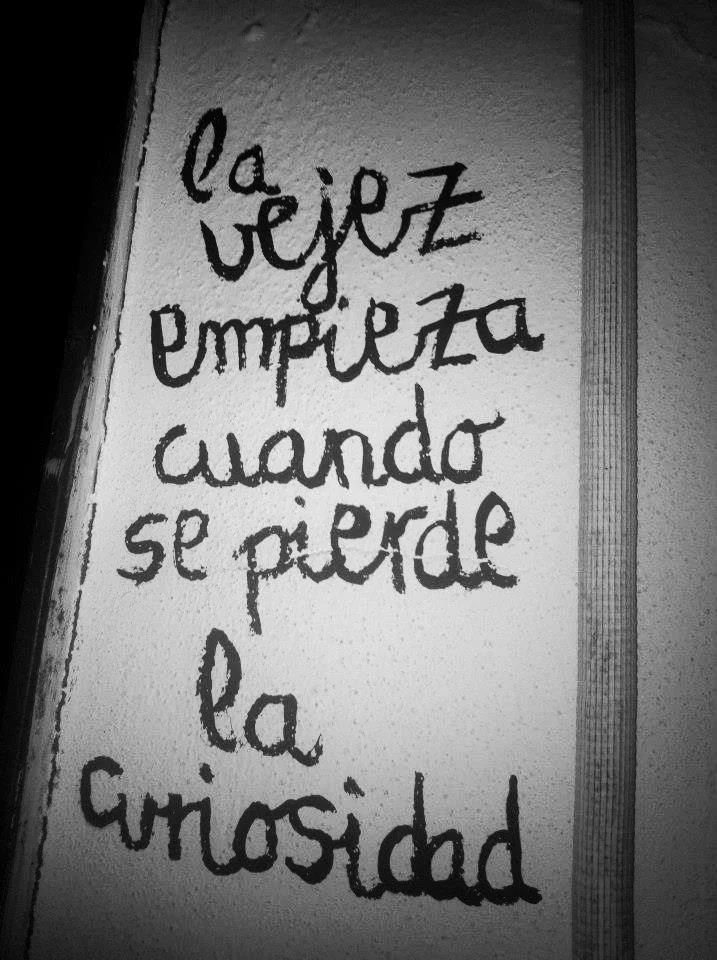 la
vejez
empieza
cuando
se pierde
la
curiosidad